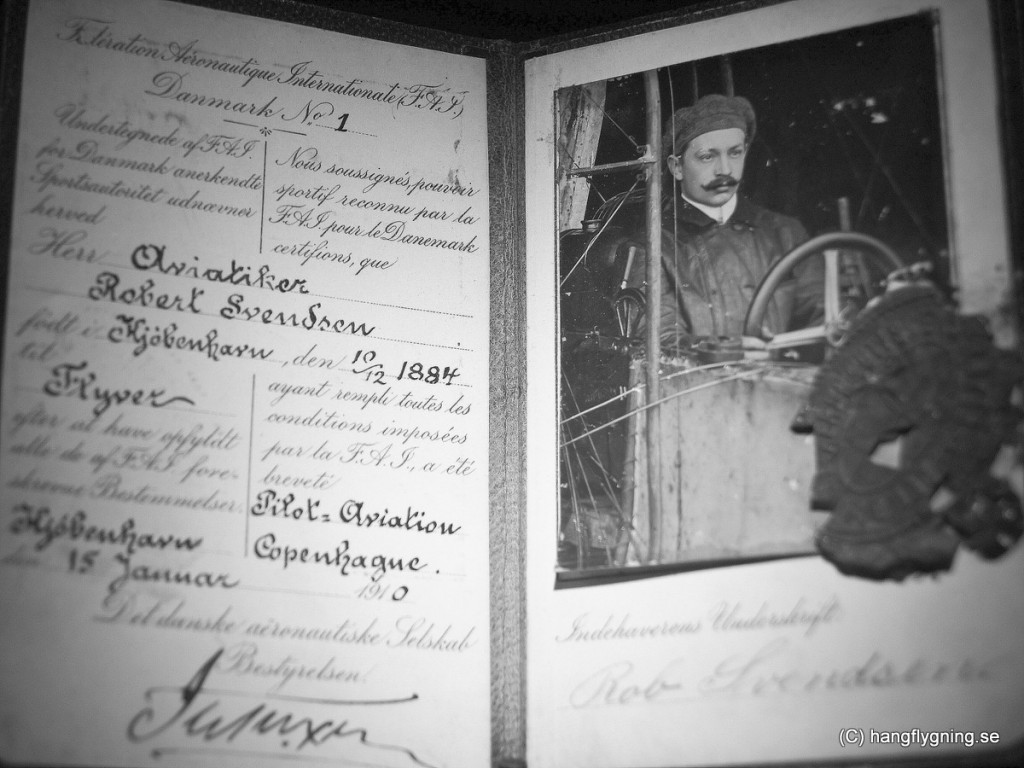 Fédération Aéronautique Internationale (F.A.I.)
Danmark No 1
Undertegnede af F.A.I.
for Danmark anerkendte
Sportsautoritet udnævner
herved
Nous soussignés, pouvoir
sportif reconnu par la
F.A.I. pour le Danemark
certifions, que
Herr Aviatiker
Robert Svendsen
født i Kjöbenhavn, den 10/12 1884
til
Flyver
efter at have opfyldt
alle de af F.A.I. fore-
skrevne Bestemmelser.
ayant rempli toutes les
conditions imposées
par la F.A.I., a été
breveté
Pilot-Aviation
Copenhague.
Kjöbenhavn
den 15 Januar 1910
Det danske aëronautiske Selskab
Bestyrelsen.
Indehaverens Underskrift.
Rob Svendsen
(C) hangflygning.se